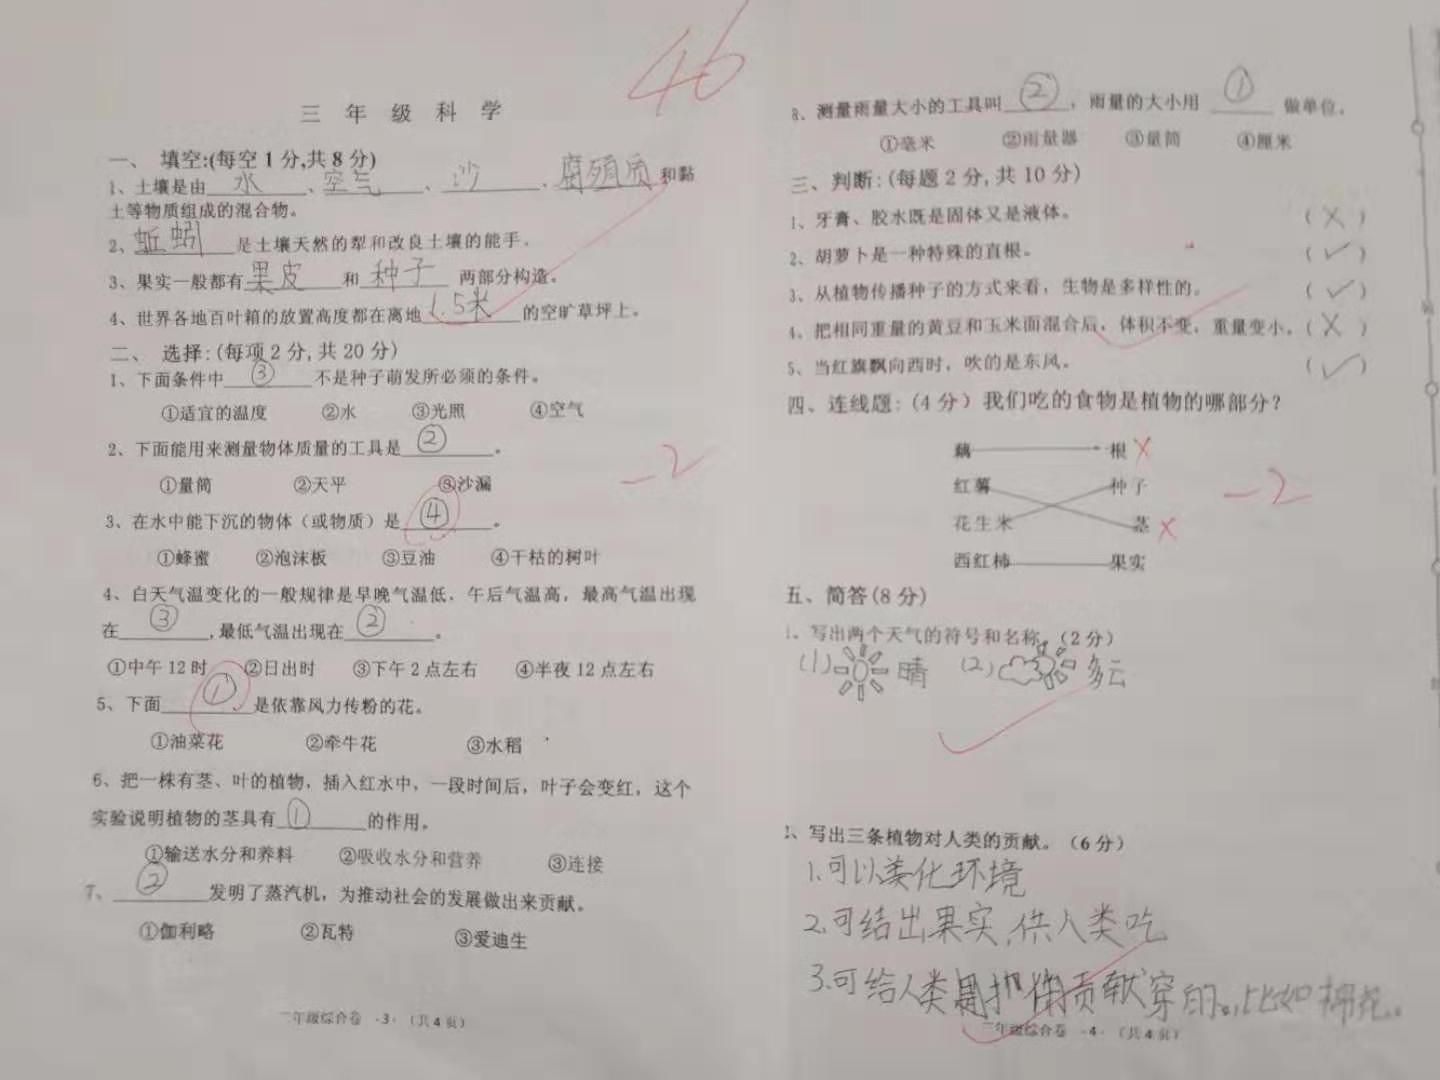 46
三 年 级 科 学
一、 填空:(每空1分,共8分)
1、土壤是由 水 、空气 、 沙 、腐殖质 和黏
土等物质组成的混合物。
2、蚯蚓 是土壤天然的犁和改良土壤的能手。
3、果实一般都有 果皮 和 种子 两部分构造。
4、世界各地百叶箱的放置高度都在离地 1.5米 的空旷草坪上。
二、 选择:(每项2分,共20分)
1、下面条件中 ③ 不是种子萌发所必须的条件。
①适宜的温度 ②水 ③光照 ④空气
2、下面能用来测量物体质量的工具是 ② 。
①量筒 ②天平 ③沙漏
-2
3、在水中能下沉的物体（或物质）是 ④ 。
①蜂蜜 ②泡沫板 ③豆油 ④干枯的树叶
4、白天气温变化的一般规律是早晚气温低，午后气温高，最高气温出现
在 ③ ,最低气温出现在 ② 。
①中午12时 ②日出时 ③下午2点左右 ④半夜12点左右
5、下面 ① 是依靠风力传粉的花。
①油菜花 ②牵牛花 ③水稻
6、把一株有茎、叶的植物，插入红水中，一段时间后，叶子会变红，这个
实验说明植物的茎具有 ① 的作用。
①输送水分和养料 ②吸收水分和营养 ③连接
7、 ② 发明了蒸汽机，为推动社会的发展做出来贡献。
①伽利略 ②瓦特 ③爱迪生
三年级综合卷 -3-（共4页）
8、测量雨量大小的工具叫 ② ，雨量的大小用 ① 做单位。
①毫米 ②雨量器 ③量筒 ④厘米
三、判断:(每题2分,共10分)
1、牙膏、胶水既是固体又是液体。 （×）
2、胡萝卜是一种特殊的直根。 （✓）
3、从植物传播种子的方式来看，生物是多样性的。 （✓）
4、把相同重量的黄豆和玉米面混合后，体积不变，重量变小。（×）
5、当红旗飘向西时，吹的是东风。 （✓）
四、连线题:(4分）我们吃的食物是植物的哪部分？
藕 根 ×
红薯 种子
-2
花生米 茎 ×
西红柿 果实
五、简答(8分)
1、写出两个天气的符号和名称。（2分）
(1) 晴 (2) 多云
2、写出三条植物对人类的贡献。（6分）
1.可以美化环境
2.可结出果实,供人类吃
3.可给人类 贡献穿的。,比如棉花。
三年级综合卷 -4-（共4页）